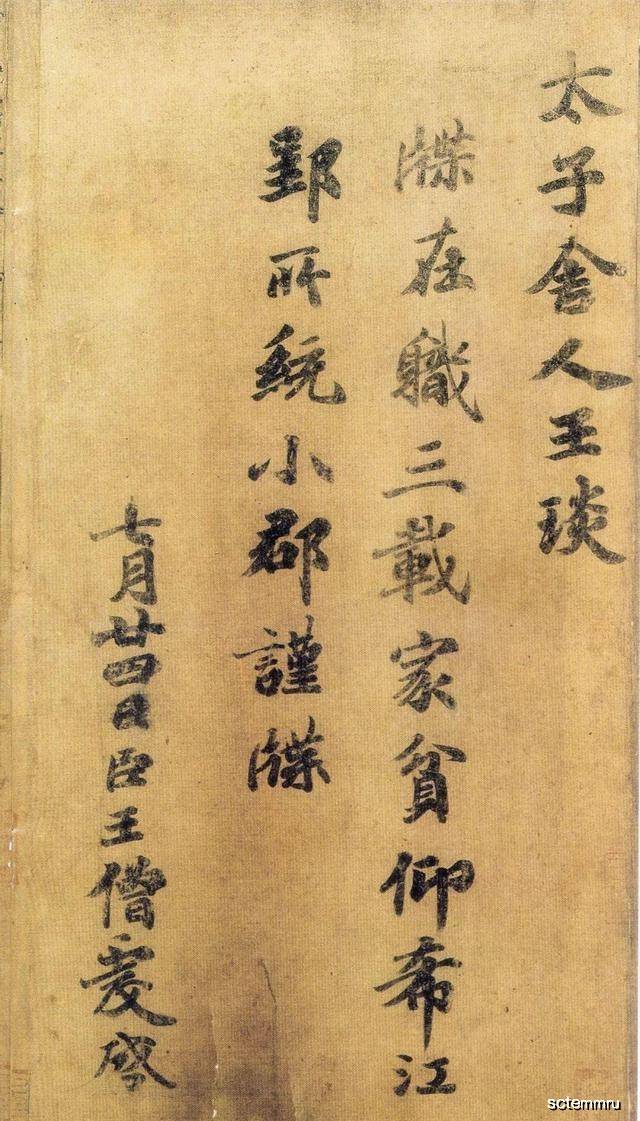 太子舍人王琰
牒在職三載家貧仰希江
郢所統小郡謹牒
七月廿四日臣王僧虔啓
sctemmru